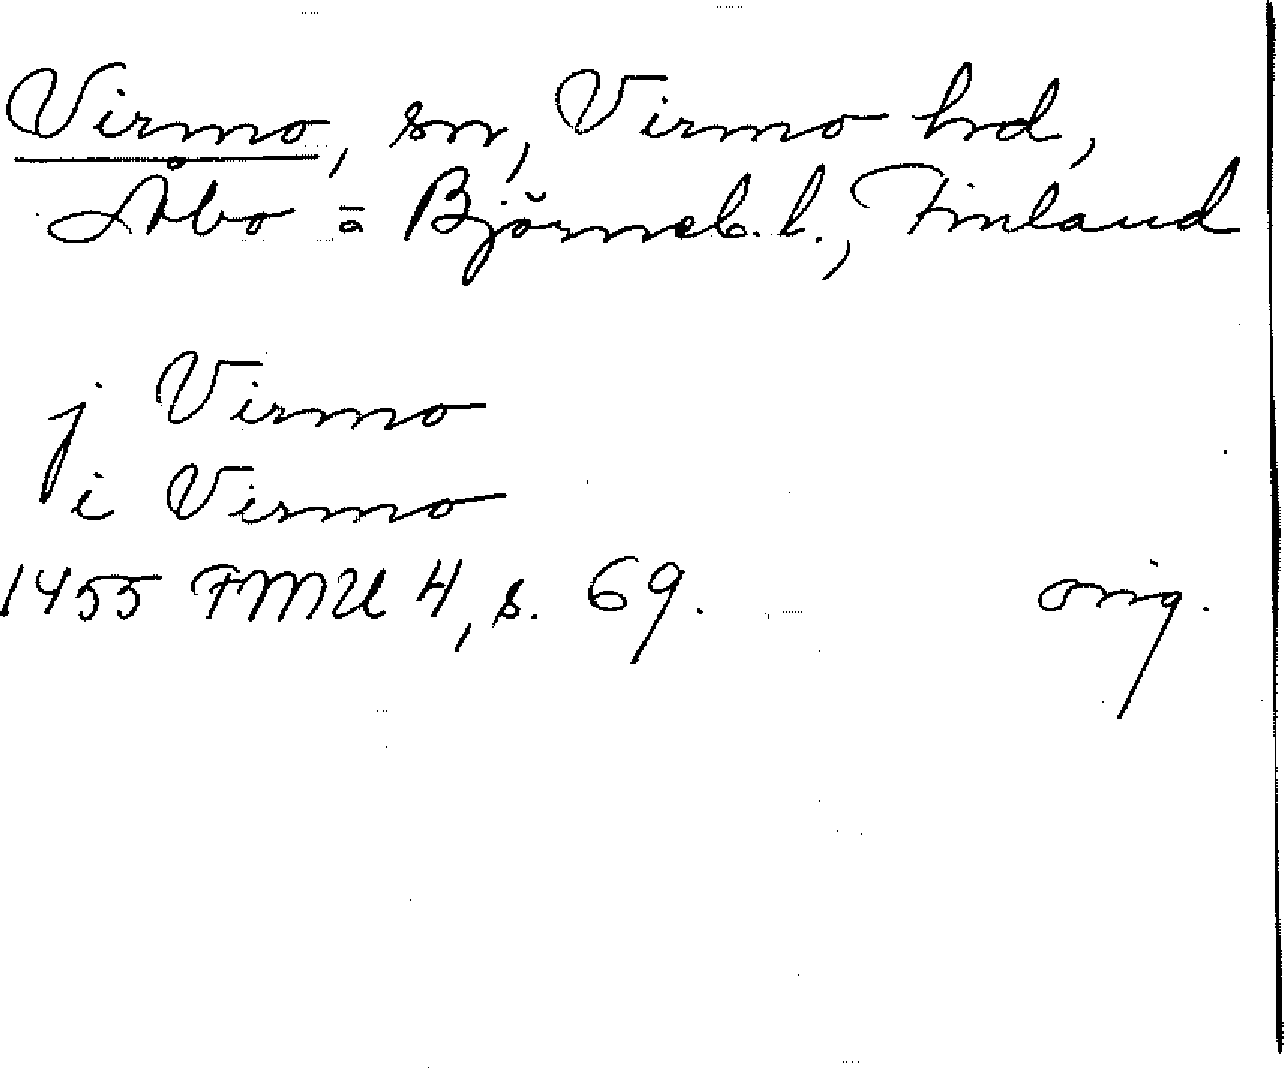 Virmo, sn, Virmo hrd,
Åbo = Björneb. l., Finland
j Virmo
i Virmo
1455 FMU 4, s. 69. orig.